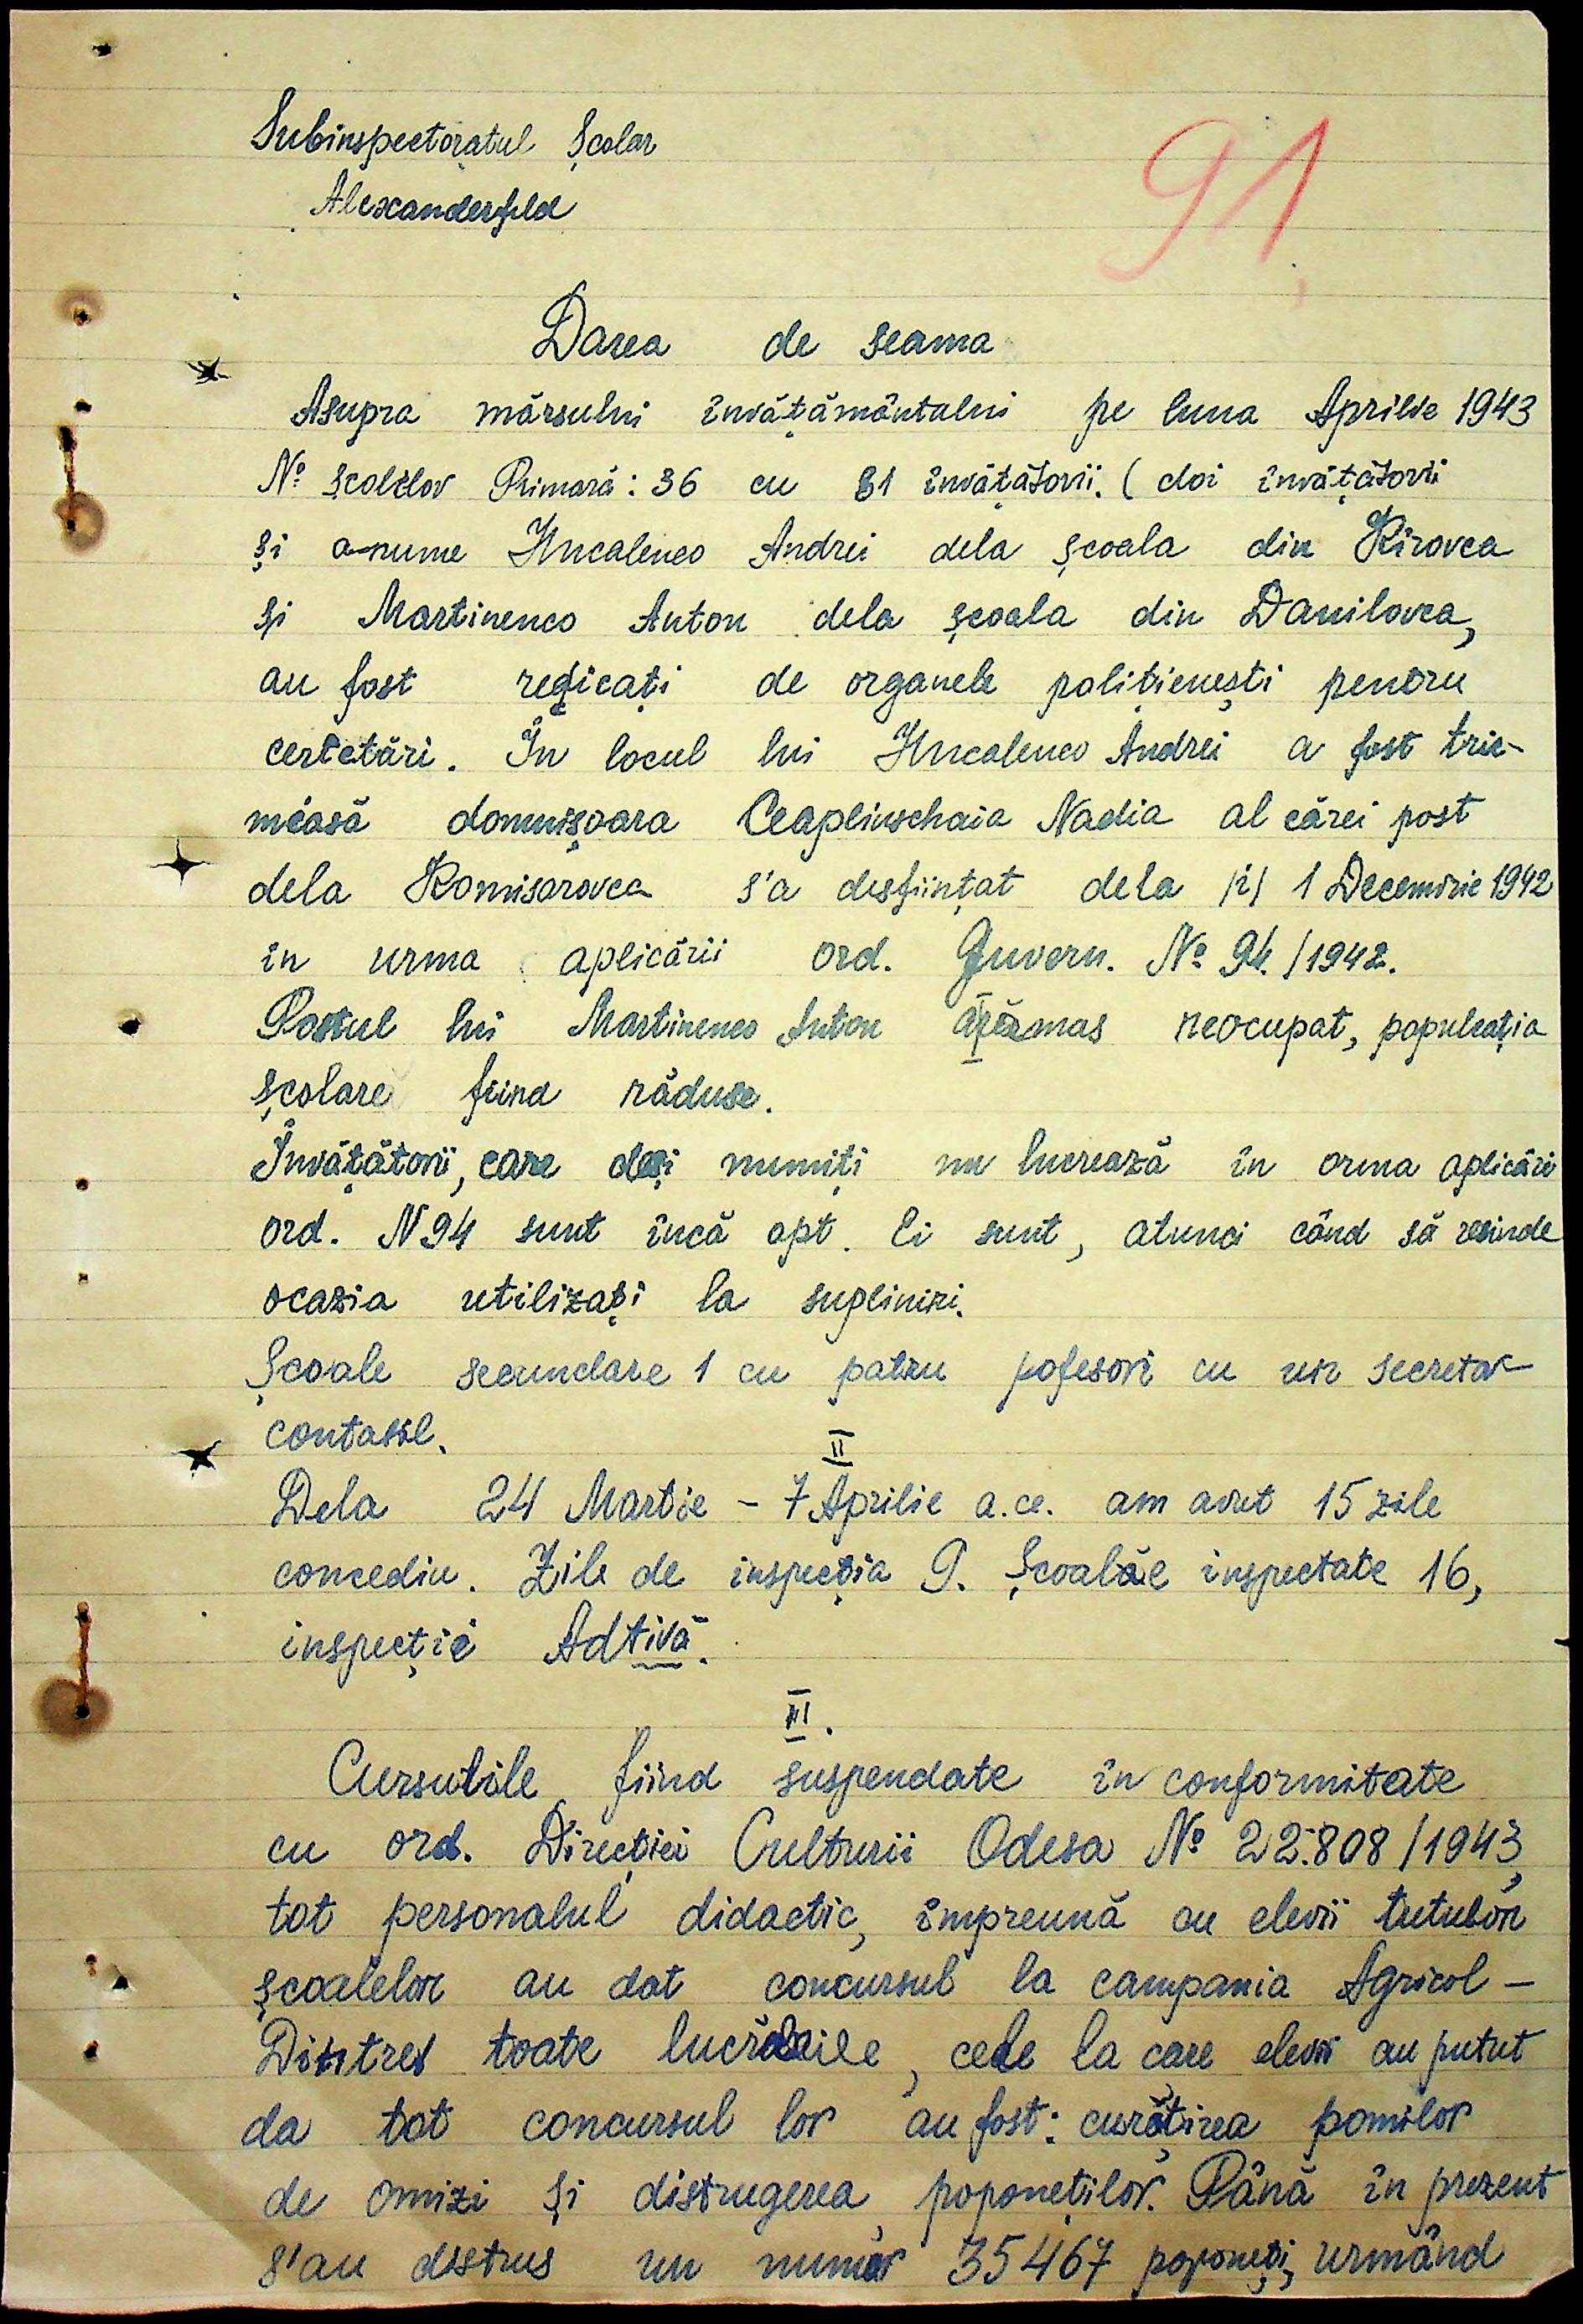 Subinspectoratul Școlar
Alexanderfeld
91
Darea de seama
Asupra mărsului învățământului pe luna Aprilie 1943
No școlilor Primară: 36 cu 81 învățătorii. ( doi învățătorii
și anume Huncalenco Andrei dela școala din Kirovca
și Martinenco Anton dela școala din Danilovca,
au fost redicați de organele polițienești pentru
certetări. În locul lui Huncalenco Andrei a fost trie-
measă domnișoara Ceaplinschaia Nadia al cărei post
dela Komisarovca s'a desființat dela 1 Decemvrie 1942
în urma aplicării ord. Guvern. No 94/1942.
Postul lui Martinenco Anton a rămas neocupat, populeația
școlare fiind răduse.
Învățătorii, care deși numiți nu lucrează în orma aplicări
ord. N 94 sunt încă apt. Ei sunt, atunci când să resinde
ocazia utilizați la supliniri.
Școale secundare 1 cu patru pofesori cu un secretar
contabil.
II
Dela 24 Martie - 7 Aprilie a.ce. am avut 15 zile
concediu. Zile de inspecția 9. Școalăe inspectate 16,
inspecție Adtivă.
III.
Cursulile fiind suspendate în conformitate
cu ord. Direcției Culturii Odesa No 22.808/1943,
tot personalul didactic, împreună cu elevii tutulor
școalelor au dat concursul la campania Agricol-
Dintres toate lucrările, cele la care elevii au putut
da tot concursul lor au fost: curățirea pomilor
de omizi și distrugerea poponeților. Până în prezent
s'au distrus un număr 35467 poponeți, urmând